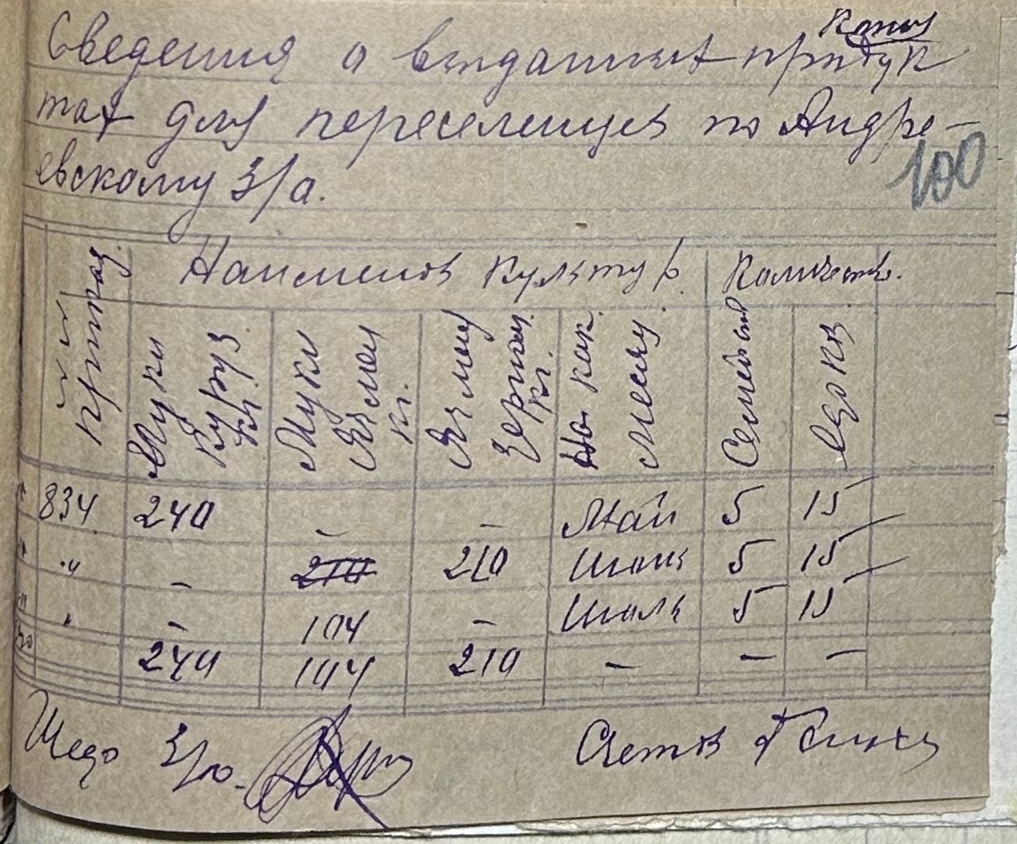 Копия
Сведения о выданных продук
тах для переселенцев по Андре-
евскому З/о.
100
Наименов культур. Количество.
№№ приказ.
Муки Кукуруз кг.
Муки Ячмен кг.
Ячмен зерном кг.
На как. месяц
Семейств
Едоков
834 240 – – Май 5 15
" – 210 210 Июнь 5 15
" – 104 – Июль 5 15
240 104 210 – – –
З/о. Счетов